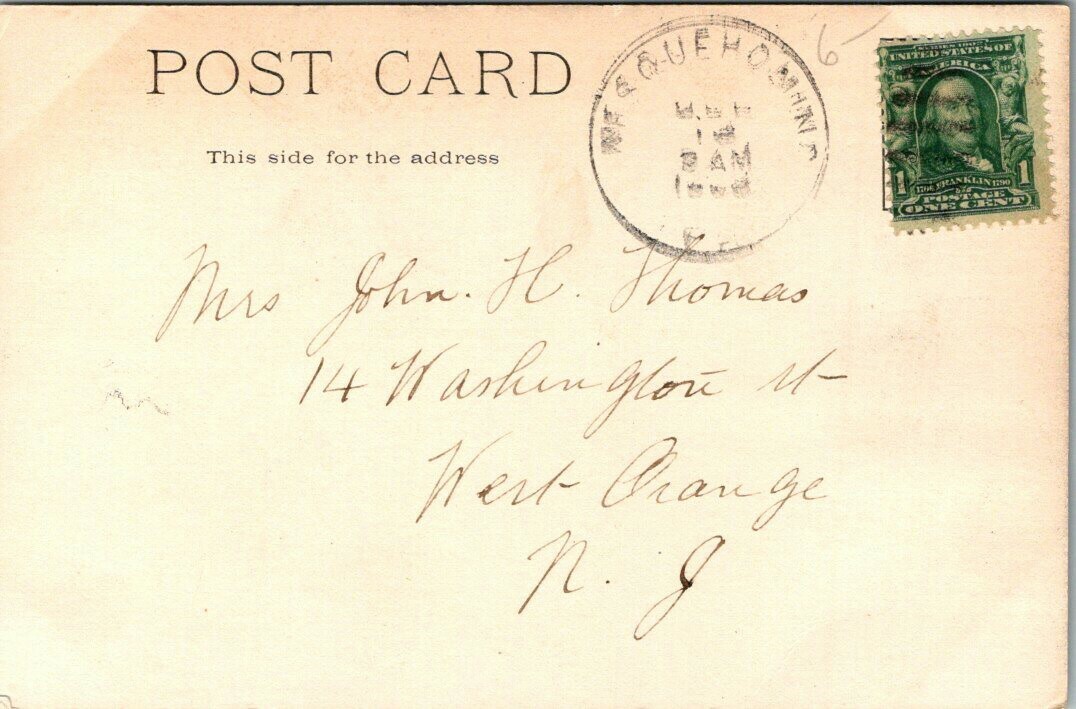 POST CARD
This side for the address
6
SERIES 1902
UNITED STATES OF
AMERICA
1 1
1706 FRANKLIN 1790
POSTAGE
ONE CENT
AM
Mrs John. H. Thomas
14 Washington st
West Orange
N. J